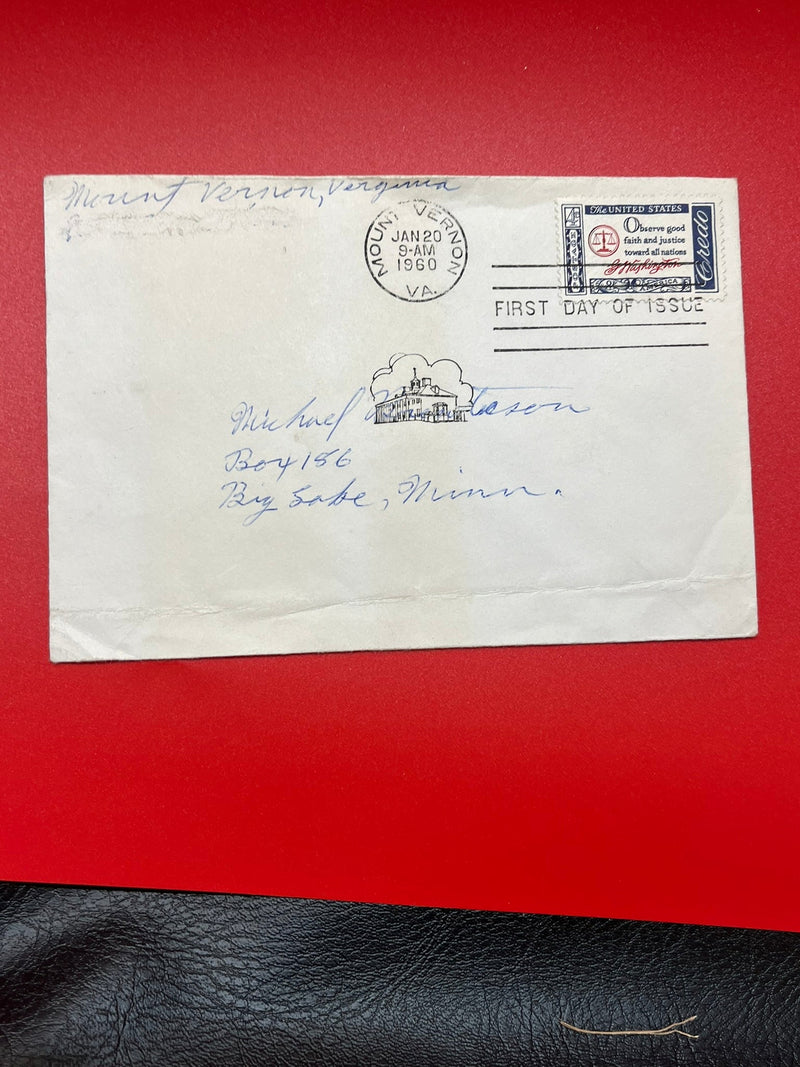 Mount Vernon, Verginia
MOUNT VERNON
JAN 20
9-AM
1960
VA.
The UNITED STATES
Observe good
faith and justice
toward all nations
G Washington
Credo
OF AMERICA
FIRST DAY OF ISSUE
Michael
Box 186
Big Lake, Minn.